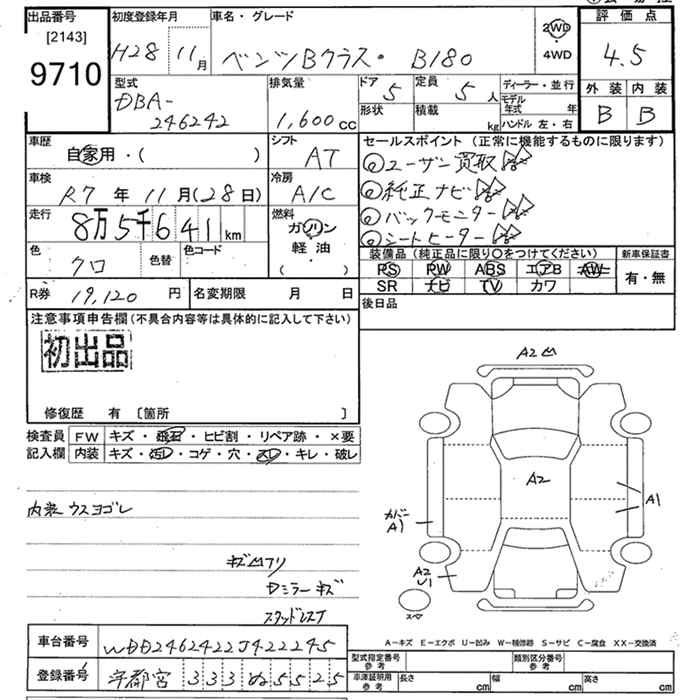 出品番号
[2143]
9710
初度登録年月
H28 11月
車名・グレード
ベンツBクラス・ B180
2WD
・
4WD
評価点
4.5
外装 内装
B B
型式
DBA-
246242
排気量
1,600cc
ドア 5
定員 5人
形状
積載 kg
ディーラー・並行
モデル年式 年
ハンドル 左・右
車歴
自家用・( )
シフト
AT
車検
R7年 11月(28日)
冷房
A/C
走行
8万5千641km
燃料
ガソリン
軽油
( )
色
クロ
色替
色コード
R券 19,120円
名変期限 月 日
セールスポイント (正常に機能するものに限ります)
ユーザー買取
純正ナビ
バックモニター
シートヒーター
装備品 (純正品に限り〇をつけてください)
PS PW ABS エアB AW
SR ナビ TV カワ
新車保証書
有・無
後日品
注意事項申告欄 (不具合内容等は具体的に記入して下さい)
初出品
修復歴 有 〔箇所 〕
検査員 FW キズ・飛石・ヒビ割・リペア跡・×要
記入欄 内装 キズ・汚レ・コゲ・穴・スレ・キレ・破レ
内装ウスヨゴレ
キズ凹アリ
Dミラーキズ
スタッドレス
A2凹
A2
A1
カバー
A1
A2
U1
スペア
A-キズ E-エクボ U-凹み W-補修跡 S-サビ C-腐食 XX-交換済
車台番号 WDD2462422J422245
登録番号 宇都宮 333 ぬ 5525
型式指定番号
参考
類別区分番号
参考
車庫証明用
参考
長さ cm
幅 cm
高さ cm